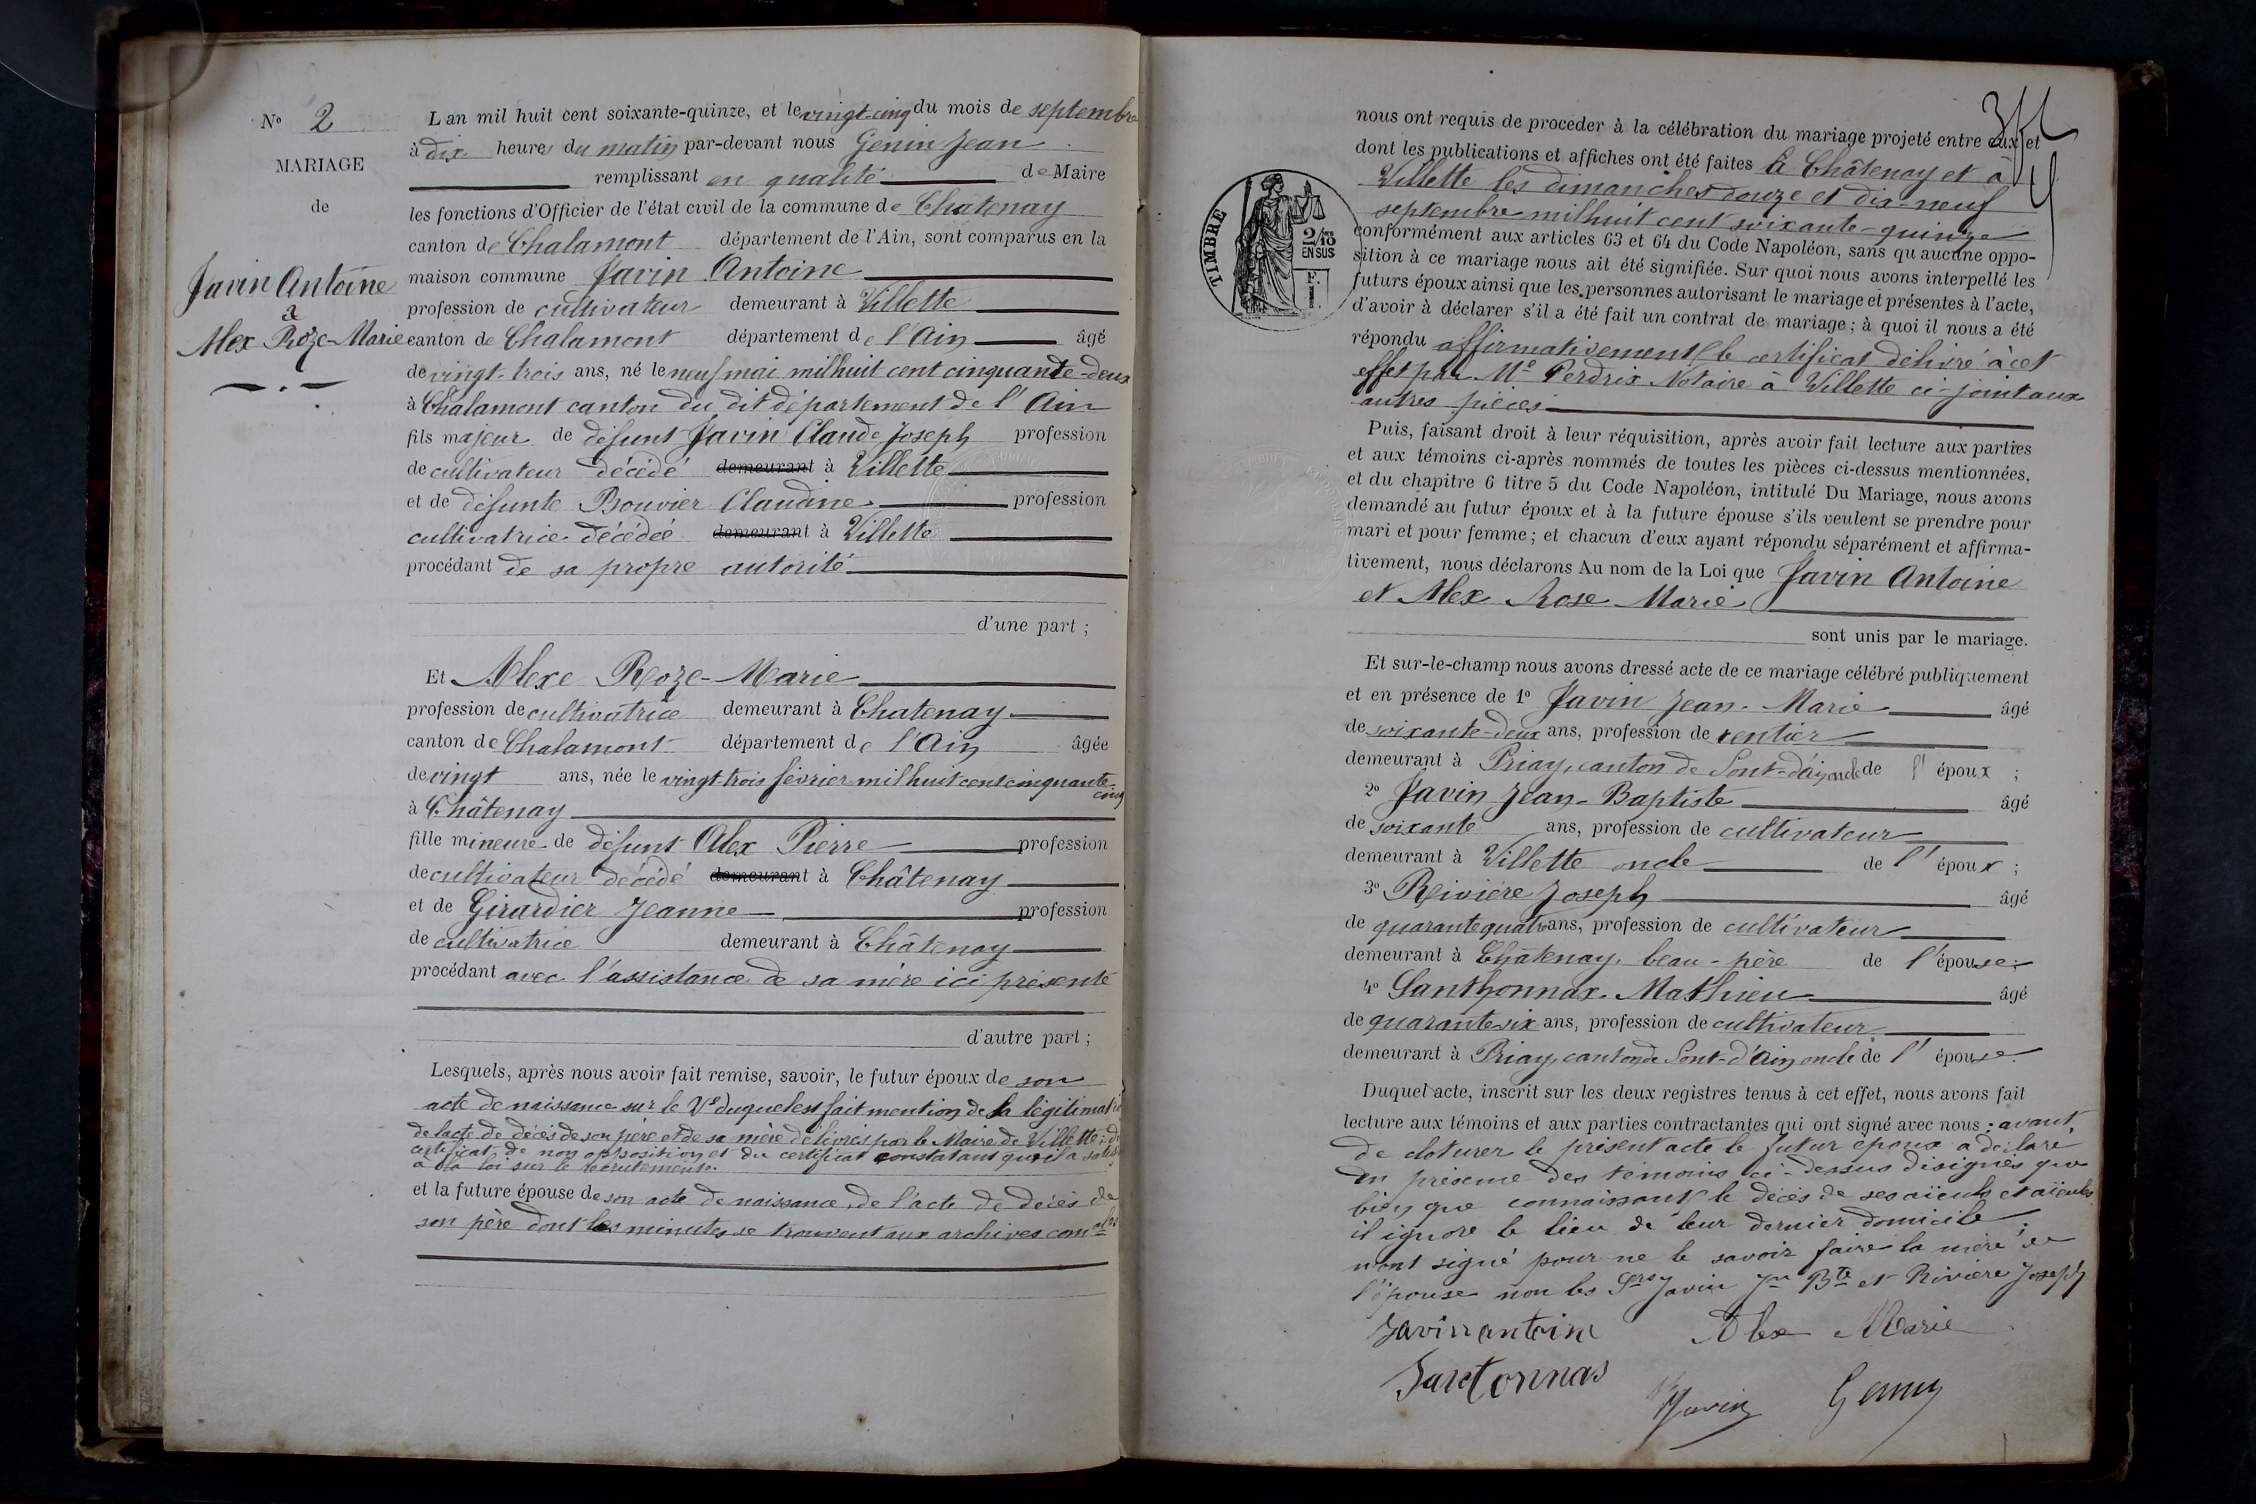 No 2
MARIAGE
de
Javin Antoine
à
Alex Roze-Marie
L an mil huit cent soixante-quinze, et le vingt-cinq du mois de septembre
à dix heures du matin par-devant nous Genin Jean
remplissant en qualité de Maire
les fonctions d'Officier de l'état civil de la commune de Chatenay
canton de Chalamont département de l'Ain, sont comparus en la
maison commune Javin Antoine
profession de cultivateur demeurant à Villette
canton de Chalamont département de l'Ain âgé
de vingt-trois ans, né le neuf mai milhuit cent cinquante-deux
à Chalamont canton du dit département de l'Ain
fils majeur de défunt Javin Claude Joseph profession
de cultivateur décédé demeurant à Villette
et de défunte Bouvier Claudine profession
cultivatrice décédée demeurant à Villette
procédant de sa propre autorité
d'une part ;
Et Alexe Roze-Marie
profession de cultivatrice demeurant à Chatenay
canton de Chalamont département de l'Ain âgée
de vingt ans, née le vingt-trois février milhuit cent cinquante-
cinq
à Châtenay
fille mineure de défunt Alex Pierre profession
de cultivateur décédé demeurant à Châtenay
et de Girardier Jeanne profession
de cultivatrice demeurant à Châtenay
procédant avec l'assistance de sa mère ici présente
d'autre part ;
Lesquels, après nous avoir fait remise, savoir, le futur époux de son
acte de naissance sur le Vo duquel est fait mention de la
de l'acte de décès de son père et de sa mère délivrés par le Maire de Villette; du
certificat de non opposition et du certificat constatant qu'il a
à la loi sur le recrutement.
et la future épouse de son acte de naissance, de l'acte de décès de
son père dont les minutes se trouvent aux archives comales
nous ont requis de procéder à la célébration du mariage projeté entre eux et
dont les publications et affiches ont été faites à Châtenay et à
Villette les dimanches douze et dix-neuf
septembre milhuit cent soixante-quinze
conformément aux articles 63 et 64 du Code Napoléon, sans qu aucune oppo-
sition à ce mariage nous ait été signifiée. Sur quoi nous avons interpellé les
futurs époux ainsi que les personnes autorisant le mariage et présentes à l'acte,
d'avoir à déclarer s'il a été fait un contrat de mariage ; à quoi il nous a été
répondu affirmativement le certificat délivré à cet
effet par Me Perdrix Notaire à Villette ci-joint aux
autres pièces
TIMBRE
2/10es
EN SUS
Puis, faisant droit à leur réquisition, après avoir fait lecture aux parties
et aux témoins ci-après nommés de toutes les pièces ci-dessus mentionnées,
et du chapitre 6 titre 5 du Code Napoléon, intitulé Du Mariage, nous avons
demandé au futur époux et à la future épouse s'ils veulent se prendre pour
mari et pour femme ; et chacun d'eux ayant répondu séparément et affirma-
tivement, nous déclarons Au nom de la Loi que Javin Antoine
et Alex Rose Marie
sont unis par le mariage.
Et sur-le-champ nous avons dressé acte de ce mariage célébré publiquement
et en présence de 1o Javin Jean-Marie âgé
de soixante-deux ans, profession de rentier
demeurant à Priay, canton de Pont-d'ain oncle de l' époux ;
2o Javin Jean-Baptiste âgé
de soixante ans, profession de cultivateur
demeurant à Villette oncle de l' époux ;
3o Rivière Joseph âgé
de quarante quatre ans, profession de cultivateur
demeurant à Châtenay, beau-père de l'épouse ;
4o Santhonnax Mathieu âgé
de quarante six ans, profession de cultivateur
demeurant à Priay, canton de Pont-d'Ain oncle de l' épouse.
Duquel acte, inscrit sur les deux registres tenus à cet effet, nous avons fait
lecture aux témoins et aux parties contractantes qui ont signé avec nous ; avant
de cloturer le présent acte le futur époux a déclaré
en présence des témoins ci-dessus désignés que
bien que connaissant le décès de ses aïeuls et aïeules
il ignore le lieu de leur dernier domicile ;
n'ont signé pour ne le savoir faire la mère de
l'épouse non les Srs Javin Jn Bte et Rivière Joseph
Javin antoine Alex Marie
Santonnas
Javin Genin